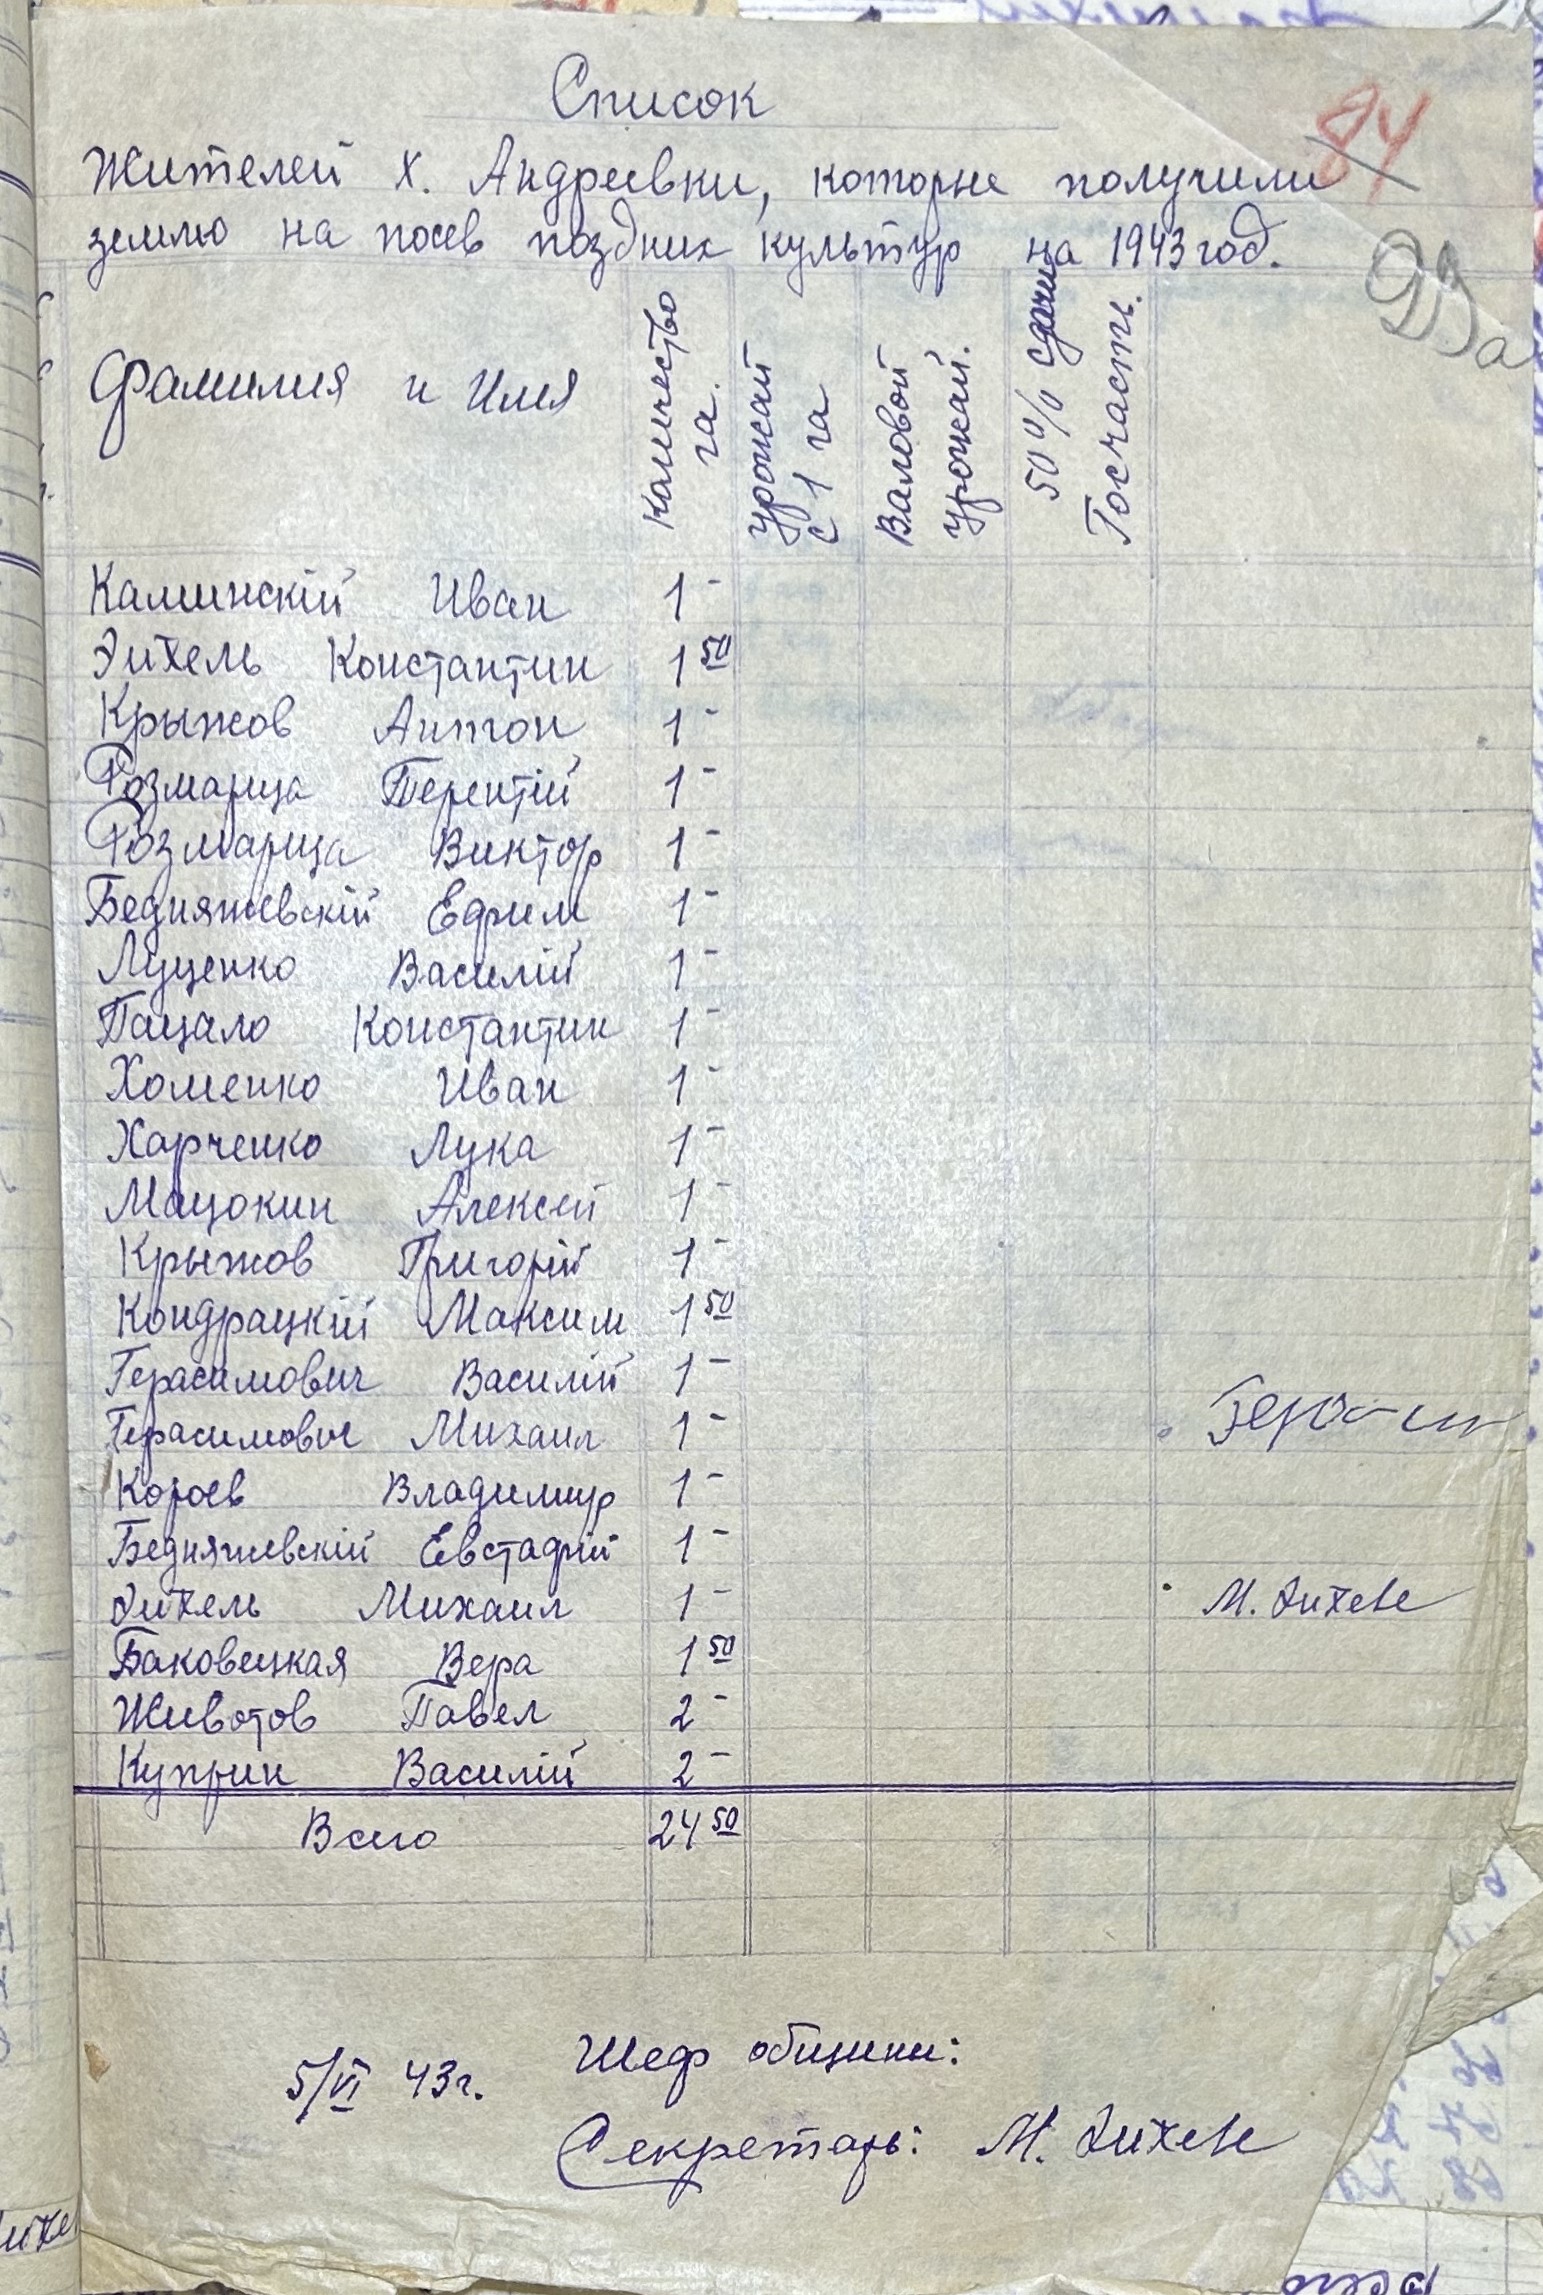 Список
84
Жителей х. Андреевки, которые получили
землю на посев поздних культур на 1943 год.
93а
Фамилия и Имя
Количество га.
урожай с 1 га
Валовой урожай.
50% сдачи Госчасти.
Каминскій Иван 1 -
Эихель Константин 1 50
Крыжов Антон 1 -
Розмарица Терентій 1 -
Розмарица Виктор 1 -
Бедняжевскій Ефим 1 -
Луценко Василій 1 -
Пацало Константин 1 -
Хоменко Иван 1 -
Харченко Лука 1 -
Мацокин Алексей 1 -
Крыжов Григорій 1 -
Кондрацкій Максим 1 50
Герасимович Василій 1 -
Герасимович Михаил 1 -
Короев Владимир 1 -
Бедняжевскій Евстафий 1 -
Эихель Михаил 1 - М. Эихель
Баковецкая Вера 1 50
Животов Павел 2 -
Куприн Василій 2 -
Всего 24 50
5/VI 43г.
Шеф общины:
Секретарь: М. Эихель